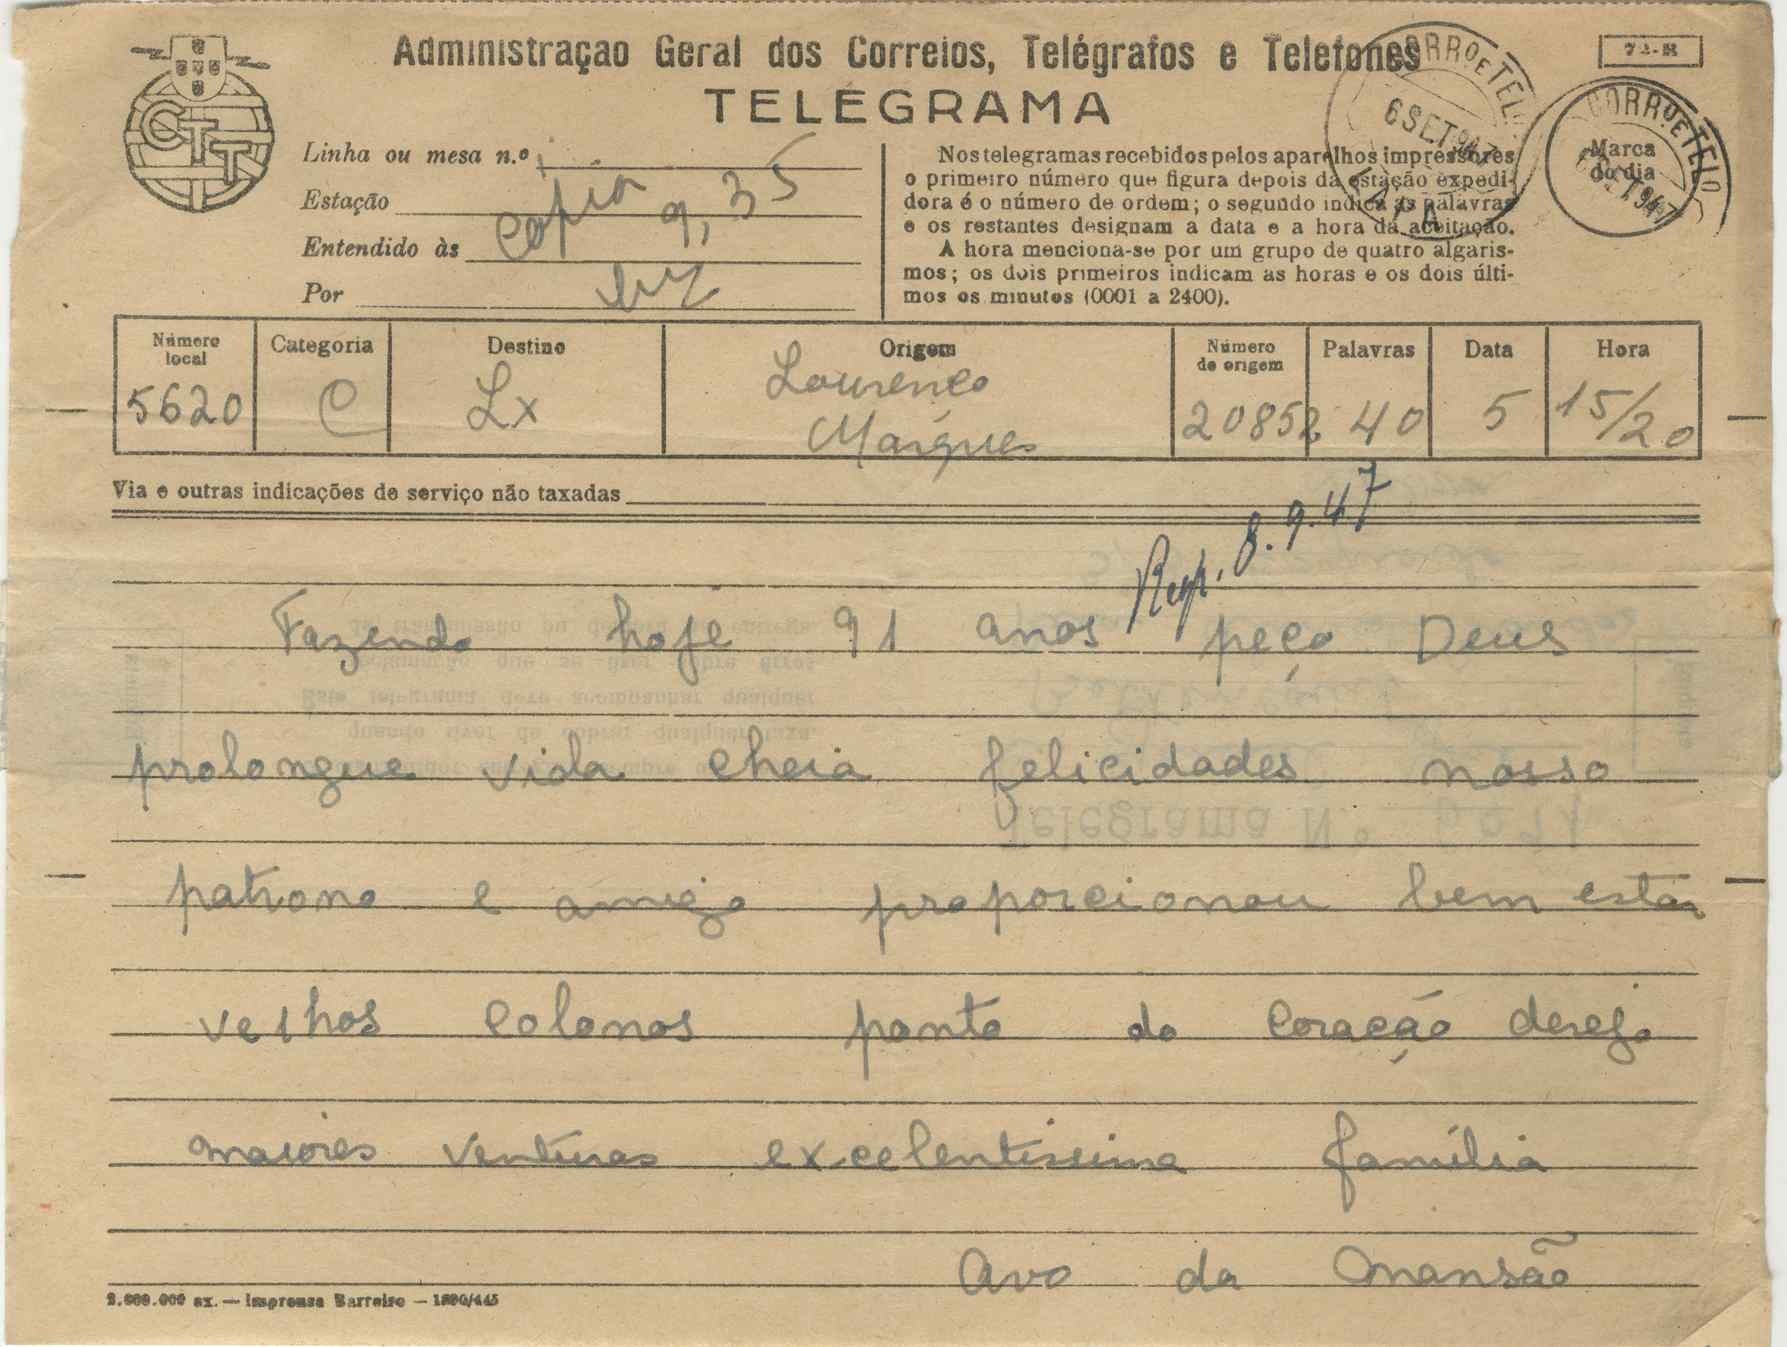 Administração Geral dos Correios, Telégrafos e Telefones
72-R
TELÉGRAMA
CTT
Linha ou mesa n.º
Estação
Entendido às
Por
copia 9,35
Nos telegramas recebidos pelos aparelhos impressores
o primeiro número que figura depois da estação expedi-
dora é o número de ordem; o segundo indica as palavras
e os restantes designam a data e a hora da aceitação.
A hora menciona-se por um grupo de quatro algaris-
mos; os dois primeiros indicam as horas e os dois últi-
mos os minutos (0001 a 2400).
CORR.OE TEL
6 SET.947
CORR.OE TELO
Marca
do dia
SET.947
Número local
Categoria
Destino
Origem
Número de origem
Palavras
Data
Hora
5620 C Lx Lourenço Marques 20852 40 5 15/20
Via e outras indicações de serviço não taxadas
Resp. 8.9.47
Fazendo hoje 91 anos peço Deus
prolongue vida cheia felicidades nosso
patrono e amigo proporcionou bem estar
velhos colonos ponto do coração desejo
maiores venturas excelentissima família
Avo da Mansão
2.000.000 ex. — Imprensa Barreiro — 1890/445